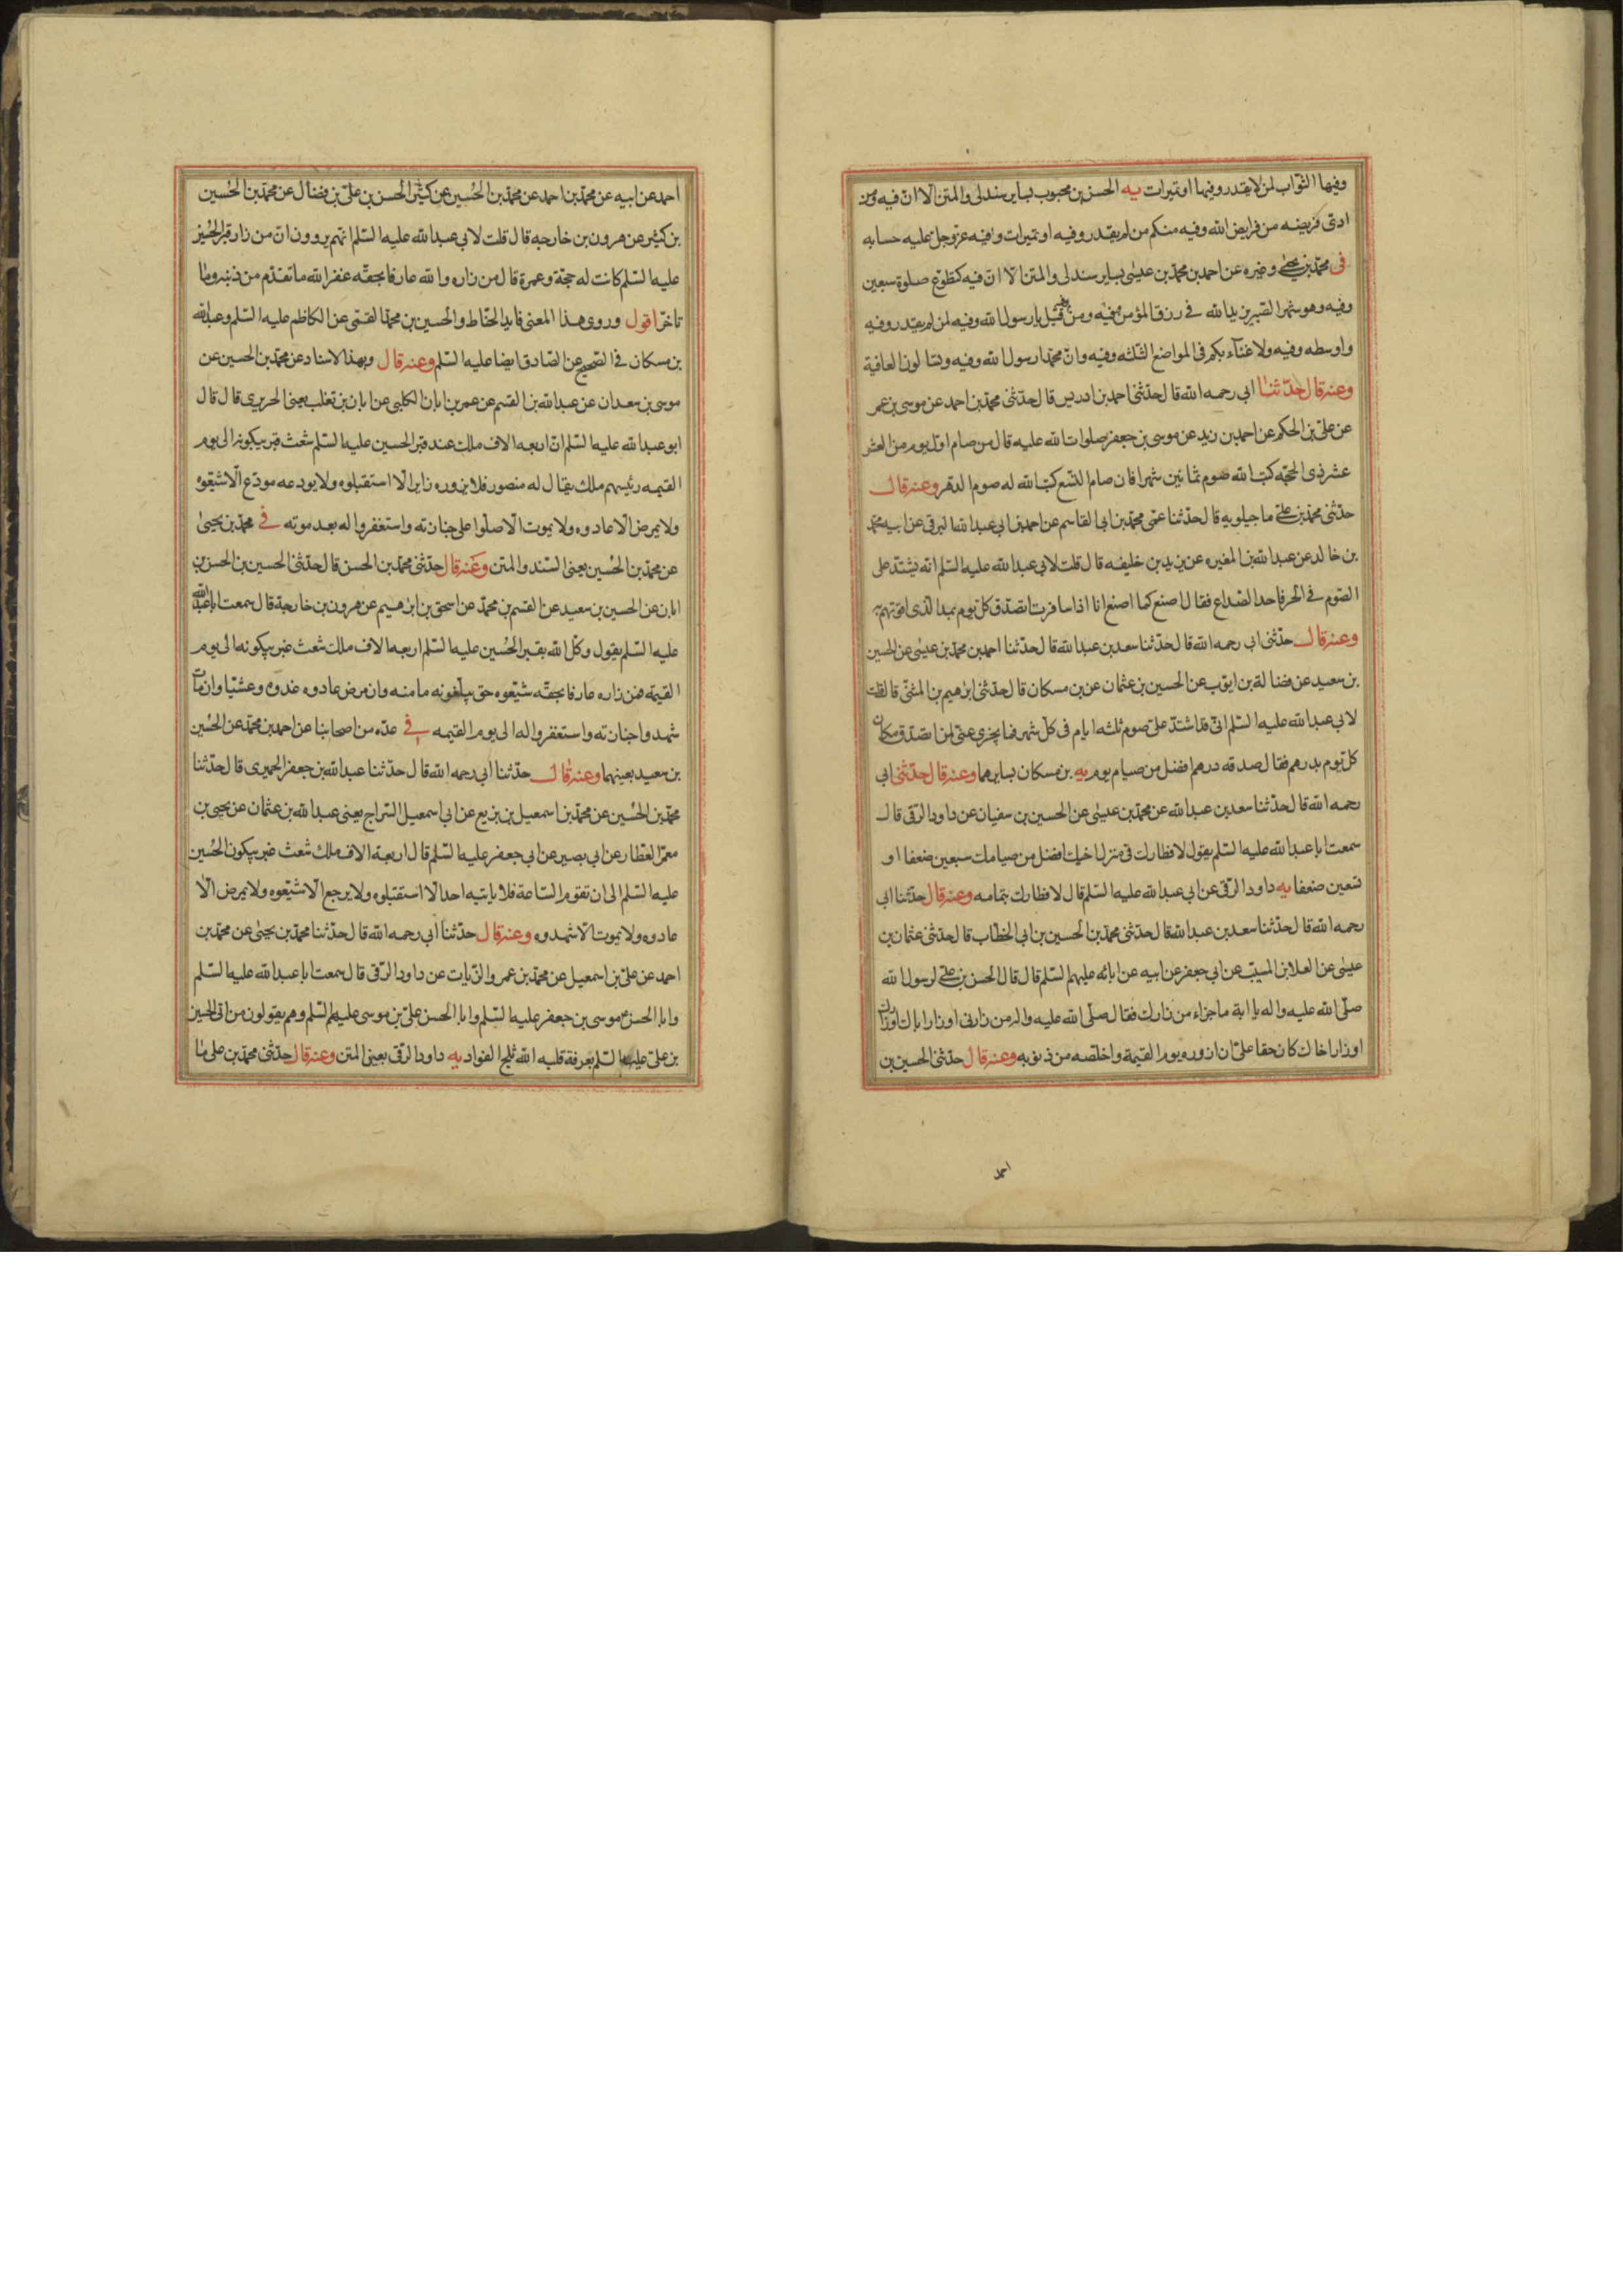 وفيها الثواب لمن لا يقدر وفيها او تميرات يه الحسن بن محبوب بساير سندلى والمتن الا ان فيه ومن
ادى فريضه من فرايض الله وفيه منكم من لم يقدر وفيه او تميرات وفيه عز وجل عليه حسابه
فى محمد بن يحيى وغيره عن احمد بن محمد بن عيسى بساير سندلى والمتن الا ان فيه كتطوع صلوة سبعين
وفيه وهو شهر الصبر يزيد الله فى رزق المؤمن فيه ومن فقيل يا رسول الله وفيه لمن لم يقدر وفيه
واوسطه وفيه ولا غناء بكم فى المواضع الثلثه وفيه وان محمدا رسول الله وفيه وتسالون العافية
وعنه قال حدثنا ابى رحمه الله قال حدثنى احمد بن ادريس قال حدثنى محمد بن احمد عن موسى بن عمر
عن على بن الحكم عن احمد بن زيد عن موسى بن جعفر صلوات الله عليه قال من صام اول يوم من العشر
عشر ذى الحجه كتب الله صوم ثمانين شهرا فان صام التسع كتب الله له صوم الدهر وعنه قال
حدثنى محمد بن على ماجيلويه قال حدثنا عمى محمد بن ابى القاسم عن احمد بن ابى عبد الله البرقى عن ابيه محمد
بن خالد عن عبد الله بن المغيره عن يزيد بن خليفه قال قلت لابى عبد الله عليه السلم انه يشتد على
الصوم فى الحر فاجد الصداع فقال اصنع كما اصنع انا اذا سافرت اتصدق كل يوم بمد الذى اقوتهم به
وعنه قال حدثنى ابى رحمه الله قال حدثنا سعد بن عبد الله قال حدثنا احمد بن محمد بن عيسى عن الحسين
بن سعيد عن فضالة بن ايوب عن الحسين بن عثمان عن بن مسكان قال حدثنى ابرهيم بن المثنى قال قلت
لابى عبد الله عليه السلم انى قد اشتد على صوم ثلثه ايام فى كل شهر فما يجزى عنى ان اتصدق مكان
كل يوم بدرهم فقال صدقه درهم افضل من صيام يوم يه بن مسكان بسايرهما وعنه قال حدثنى ابى
رحمه الله قال حدثنا سعد بن عبد الله عن محمد بن عيسى عن الحسين بن سفيان عن داود الرقى قال
سمعت ابا عبد الله عليه السلم يقول لافطارك فى منزل اخيك افضل من صيامك سبعين ضعفا او
تسعين ضعفا يه داود الرقى عن ابى عبد الله عليه السلم قال لافطارك بتمامه وعنه قال حدثنا ابى
رحمه الله قال حدثنا سعد بن عبد الله قال حدثنى محمد بن الحسين بن ابى الخطاب قال حدثنى عثمان بن
عيسى عن العلا بن المسيب عن ابى جعفر عن ابيه عن ابائه عليهم السلم قال قال الحسن بن على لرسول الله
صلى الله عليه واله يا ابة ما جزاء من زارك فقال صلى الله عليه واله من زارنى او زار اباك او زارك
او زار اخاك كان حقا على ان ازوره يوم القيمة واخلصه من ذنوبه وعنه قال حدثنى الحسين بن
احمد
احمد عن ابيه عن محمد بن احمد عن محمد بن الحسين عن كثير الحسن بن على بن فضال عن محمد بن الحسين
بن كثير عن هرون بن خارجه قال قلت لابى عبد الله عليه السلم انهم يروون ان من زار قبر الحسين
عليه السلم كانت له حجة وعمرة قال من زاره والله عارفا بحقه غفر الله ما تقدم من ذنبه وما
تاخر اقول وروى هذا المعنى قايد الحناط والحسين بن محمد القمى عن الكاظم عليه السلم وعبد الله
بن مسكان فى الصحيح عن الصادق ايضا عليه السلم وعنه قال وبهذا الاسناد عن محمد بن الحسين عن
موسى بن سعدان عن عبد الله بن القسم عن عمر بن ابان الكلبى عن ابان بن تغلب يعنى الحريرى قال قال
ابو عبد الله عليه السلم ان اربعه الاف ملك عند قبر الحسين عليه السلم شعث غبر يبكونه الى يوم
القيمه رئيسهم ملك يقال له منصور فلا يزوره زاير الا استقبلوه ولا يودعه مودع الا شيعوه
ولا يمرض الا عادوه ولا يموت الا صلوا على جنازته واستغفروا له بعد موته فى محمد بن يحيى
عن محمد بن الحسين بعينى السند والمتن وعنه قال حدثنى محمد بن الحسن قال حدثنى الحسين بن الحسن بن
ابان عن الحسين بن سعيد عن القسم بن محمد عن اسحق بن ابرهيم عن هرون بن خارجة قال سمعت ابا عبد الله
عليه السلم يقول وكل الله بقبر الحسين عليه السلم اربعه الاف ملك شعث غبر يبكونه الى يوم
القيمة فمن زاره عارفا بحقه شيعوه حتى يبلغونه مامنه وان مرض عادوه غدوة وعشيا وان مات
شهدوا جنازته واستغفروا له الى يوم القيمه فى عده من اصحابنا عن احمد بن محمد عن الحسين
بن سعيد بعينهما وعنه قال حدثنا ابى رحمه الله قال حدثنا عبد الله بن جعفر الحميرى قال حدثنا
محمد بن الحسين عن محمد بن اسمعيل بن بزيع عن ابى اسمعيل السراج يعنى عبد الله بن عثمان عن يحيى بن
معمر العطار عن ابى بصير عن ابى جعفر عليه السلم قال اربعة الاف ملك شعث غبر يبكون الحسين
عليه السلم الى ان تقوم الساعة فلا ياتيه احد الا استقبلوه ولا يرجع الا شيعوه ولا يمرض الا
عادوه ولا يموت الا شهدوه وعنه قال حدثنا ابى رحمه الله قال حدثنا محمد بن يحيى عن محمد بن
احمد عن على بن اسمعيل عن محمد بن عمرو الزيات عن داود الرقى قال سمعت ابا عبد الله عليه السلم
وابا الحسن موسى بن جعفر عليه السلم وابا الحسن على بن موسى عليهم السلم وهم يقولون من اتى الحسين
بن على عليه السلم بعرفة قلبه الله ثلج الفواد يه داود الرقى بعينى المتن وعنه قال حدثنى محمد بن على ما